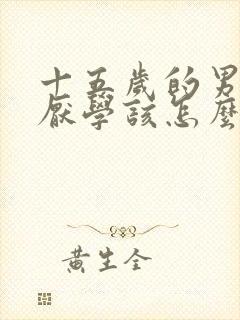 十五歲的男
厭學該怎麼
黃生全